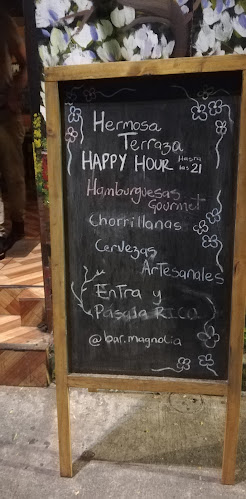 Hermosa
Terraza
HAPPY HOUR Hasta
las 21
Hamburguesas
Gourmet
Chorrillanas
Cervezas
Artesanales
Entra y
Pásala RICO
@bar.magnolia